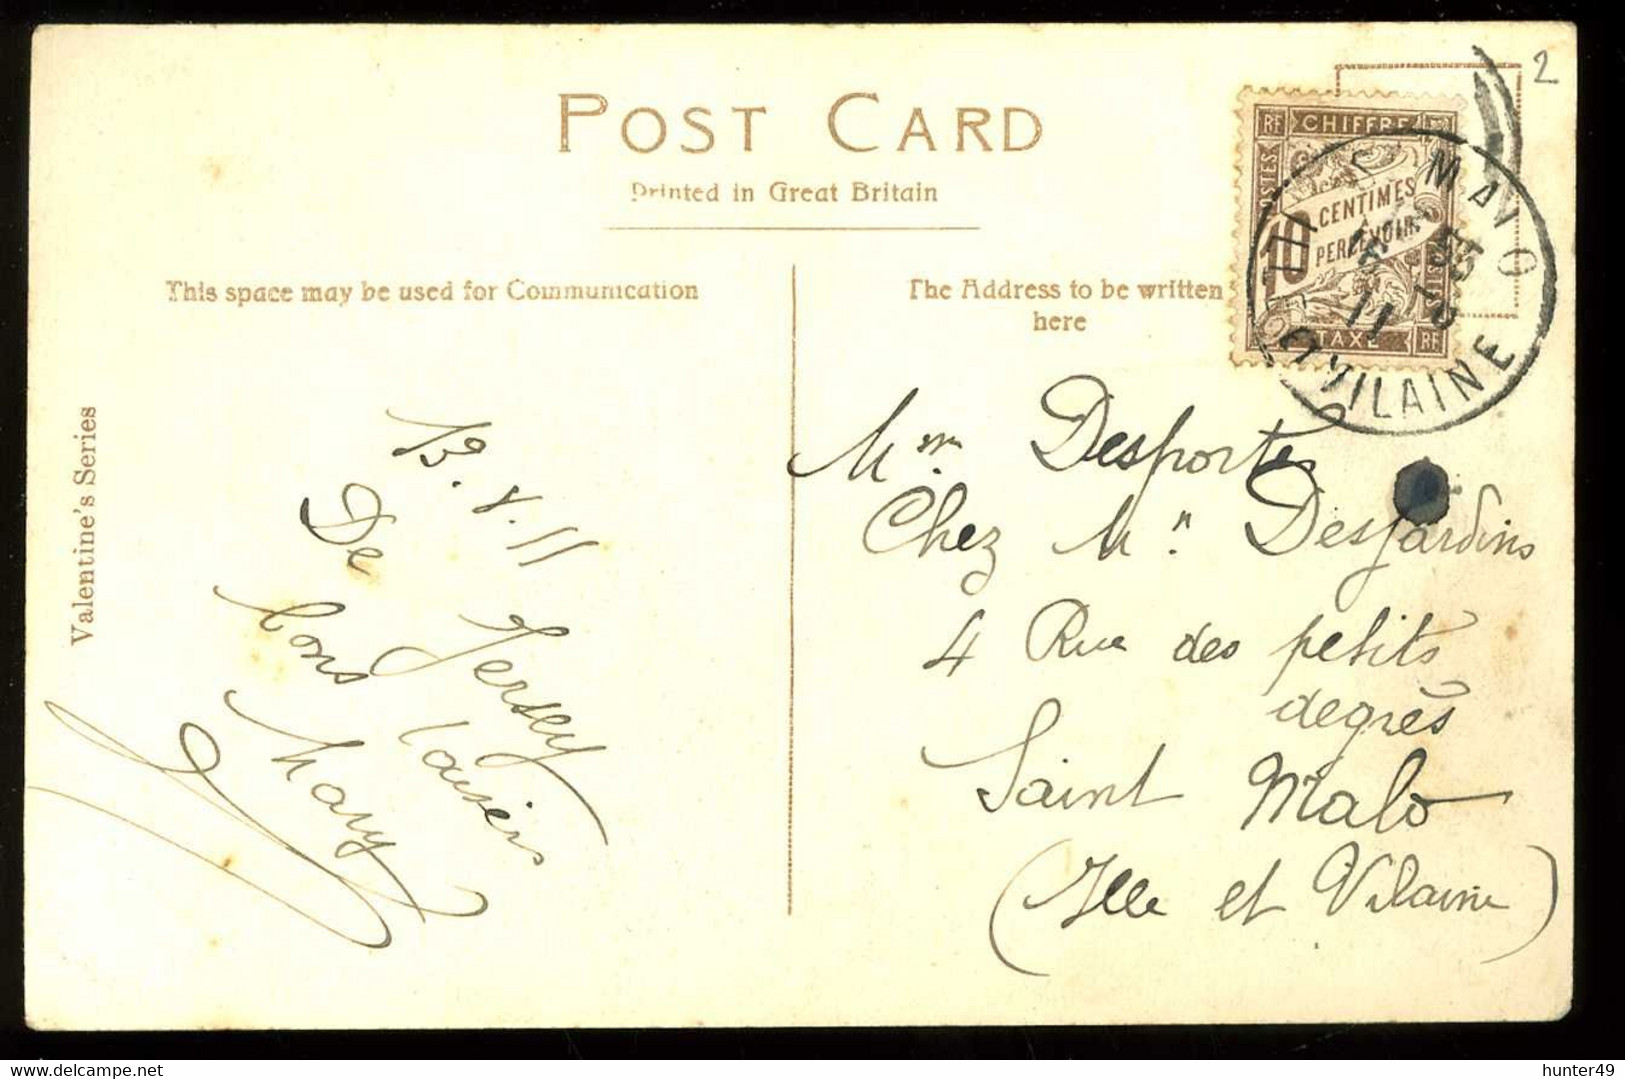 2
POST CARD
Printed in Great Britain
This space may be used for Communication
The Address to be written
here
Valentine's Series
RF CHIFFRE
POSTES
10
CENTIMES
À
PERCEVOIR
TAXE RF
ILLE
VILAINE
55
11
13.8.11
De Jersey
bons baisers
Mary
Mr. Desportes
Chez Mr. Desjardins
4 Rue des petits
degrés
Saint Malo
(Ille et Vilaine)
hunter49